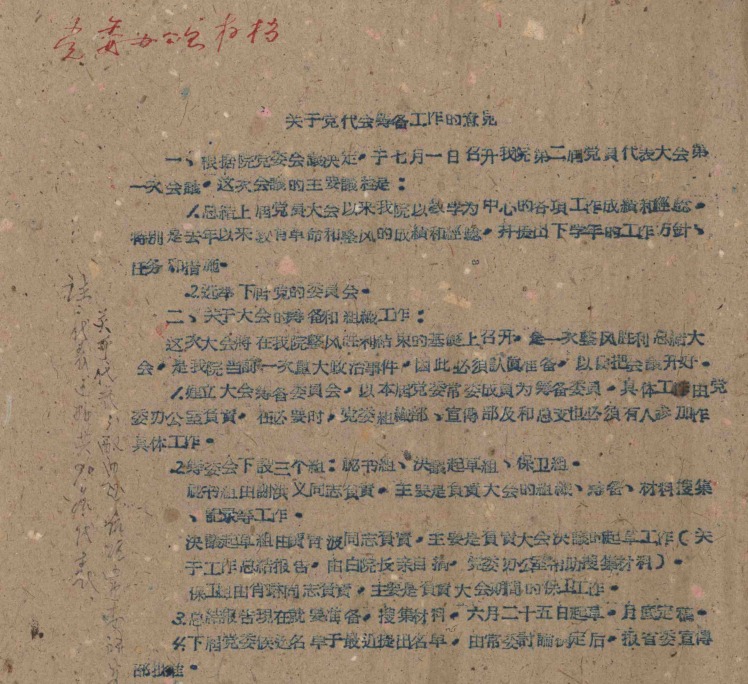 党委办公室存档
关于党代会筹备工作的意见
一、根据院党委会議决定。于七月一日召开我院第二届党員代表大会第
一次会議。这次会議的主要議程是：
1.总結上届党員大会以来我院以教学为中心的各項工作成績和經驗。
特別是去年以来教育革命和整风的成績和經驗。幷提出下学年的工作方針、
任务和措施。
2.选举下届党的委員会。
二、关于大会的筹备和組織工作：
这次大会将在我院整风胜利結束的基础上召开。是一次整风胜利总結大
会。是我院当前一次重大政治事件。因此必須認眞准备。以便把会議开好。
1.建立大会筹备委員会。以本届党委常委成員为筹备委員。具体工作由党
委办公室負責。在必要时。党委組織部、宣传部及和总支也必須有人参加作
具体工作。
2.筹委会下設三个組：秘书組、决議起草組、保卫組。
秘书組由 义同志負責。主要是負責大会的組織、筹备、材料搜集
、記录等工作。
决議起草組由 波同志負責。主要是負責大会决議的起草工作(关
于工作总結报告。由白院长亲自搞。党委办公室帮助搜集材料)。
保卫組由肖 同志負責。主要是負責大会期間的保卫工作。
3.总結报告現在就要准备。搜集材料。六月二十五日起草。月底定稿。
4.下届党委候选名单于最近提出名单。由常委討論决定后。报省委宣传
部批准。
注：代表 代表
关于代表